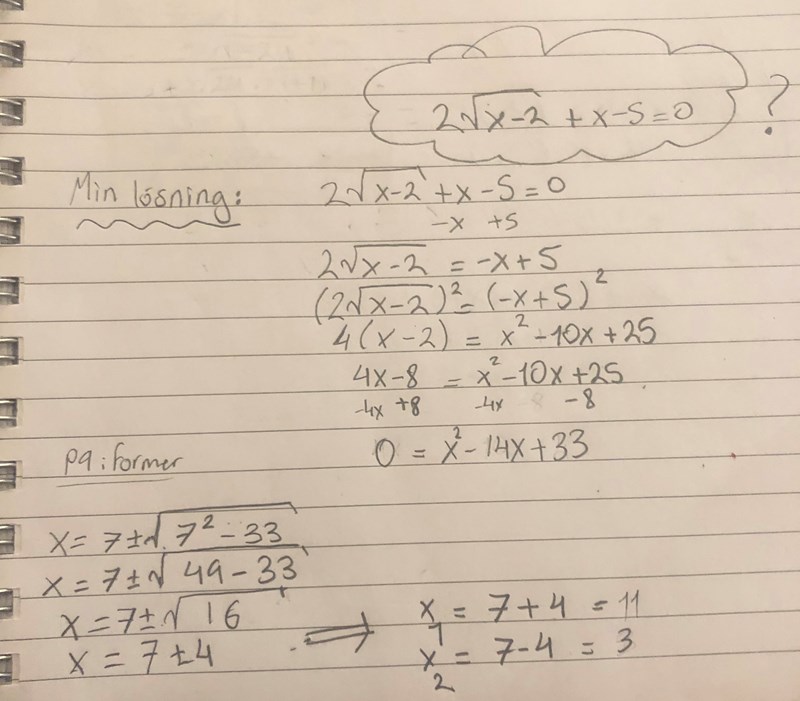 2√(x-2) + x-5=0 ?
Min lösning: 2√(x-2) + x - 5 = 0
-x +5
2√(x-2) = -x+5
(2√(x-2))² = (-x+5)²
4(x-2) = x²-10x+25
4x-8 = x²-10x+25
-4x +8 -4x -8
pq: former 0 = x²-14x+33
x = 7±√(7²-33)
x = 7±√(49-33)
x = 7±√16
x = 7±4 ⟹ x₁ = 7+4 = 11
x₂ = 7-4 = 3